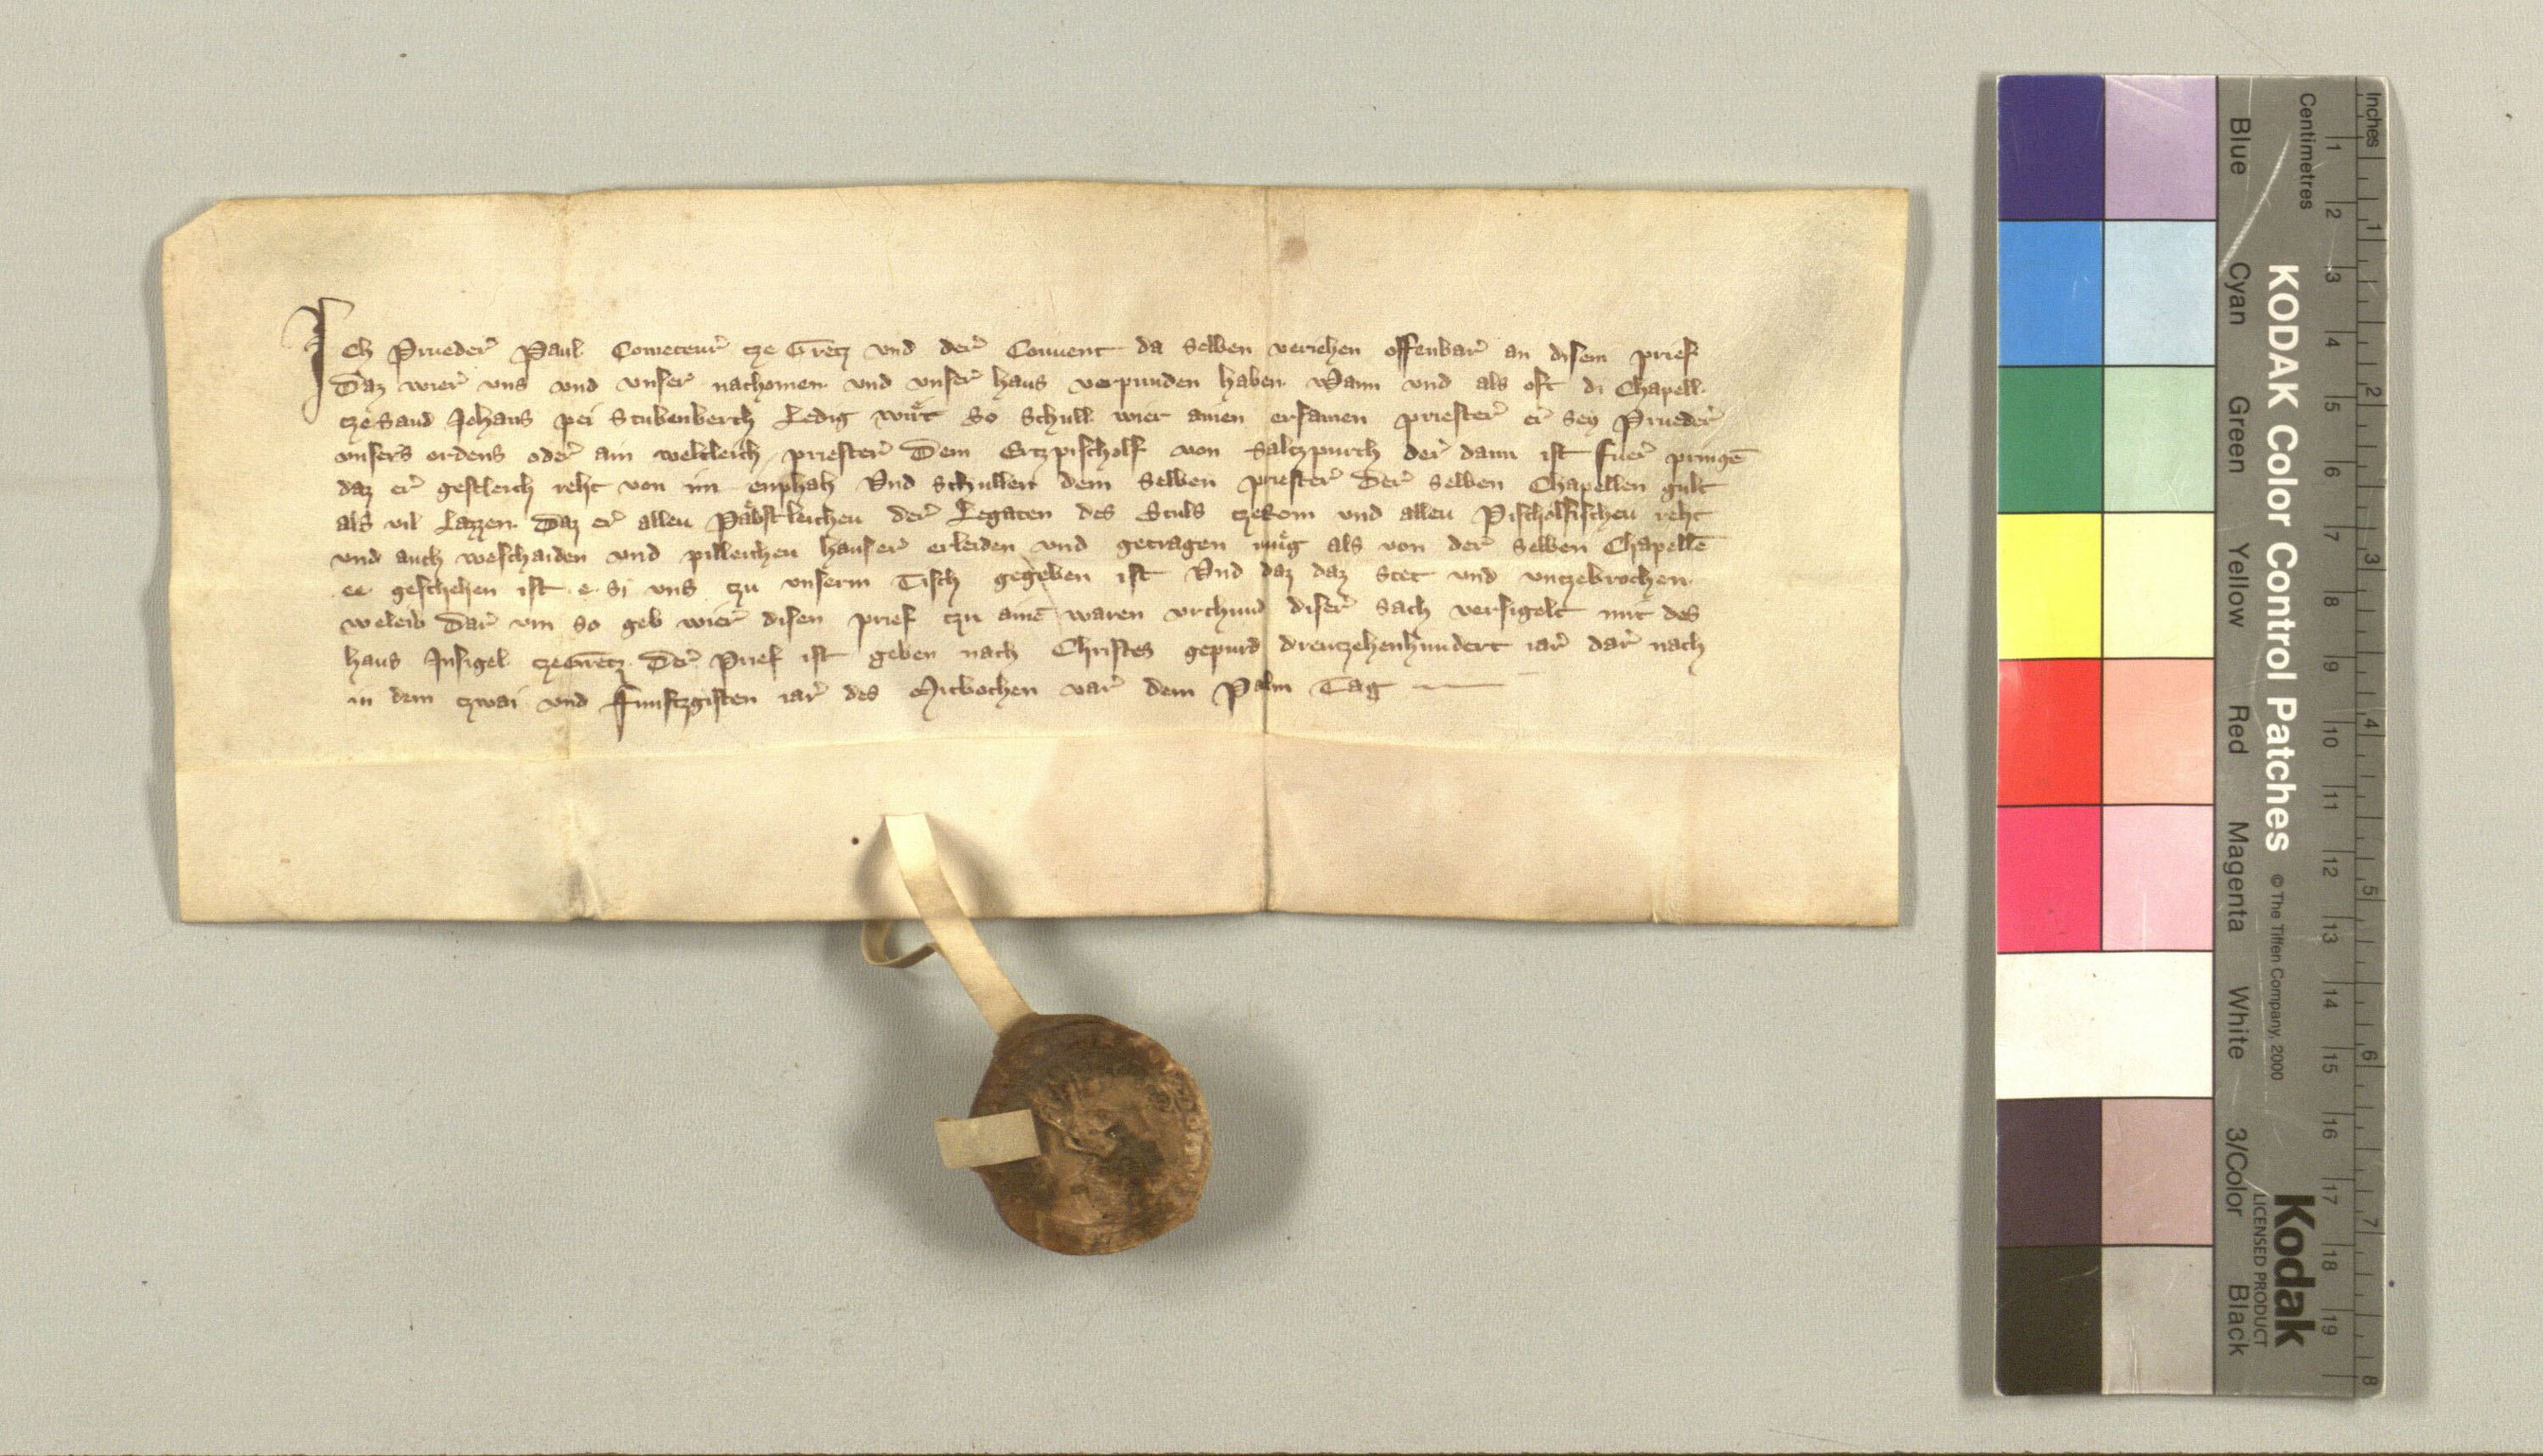 Ich Prueder Paul Cometeur tze Gretz vnd der Conuent da selben veriehen offenbar an disem prief
Daz wier vns vnd vnser nachomen vnd vnser haus verpunden haben Wann vnd als oft di Chapell
tze Sand Johans pei Stubenberch Ledig wuͤrt So Schull wier ainen ersamen priester er sey Prueder
vnsers ordens oder ain weltleich priester Dem Ertzpischolf von Saltzpurch der dann ist fuer pringē
daz er gestleich reht von im enphah Vnd Schullen dem selben priester Der selben Chapellen gult
als vil Lazzen Daz er allen Paͤbstleichen der Legaten des Stuls tze Rom vnd allen Pischolfischen reht
vnd auch weschaiden vnd pilleichen hauser erleiden vnd getragen muͤg als von der selben Chapellē
ee geschehen ist e si vns tzu vnserm Tisch gegeben ist Vnd daz daz stet vnd vntzebrochen
weleib Dar vm so geb wier disen prief tzu ainē waren vrchund diser sach versigelt mit des
haus Insigel tze Gretz Der Prief ist geben nach Christes gepurd dreutzehenhundert iar dar nach
in dem tzwai vnd ffunftzgisten iar des Mitbochen var dem Palm Tag
Inches
Centimetres
1 2 3 4 5 6 7 8 9 10 11 12 13 14 15 16 17 18 19
1 2 3 4 5 6 7 8
KODAK Color Control Patches © The Tiffen Company, 2000
Kodak
LICENSED PRODUCT
Blue Cyan Green Yellow Red Magenta White 3/Color Black